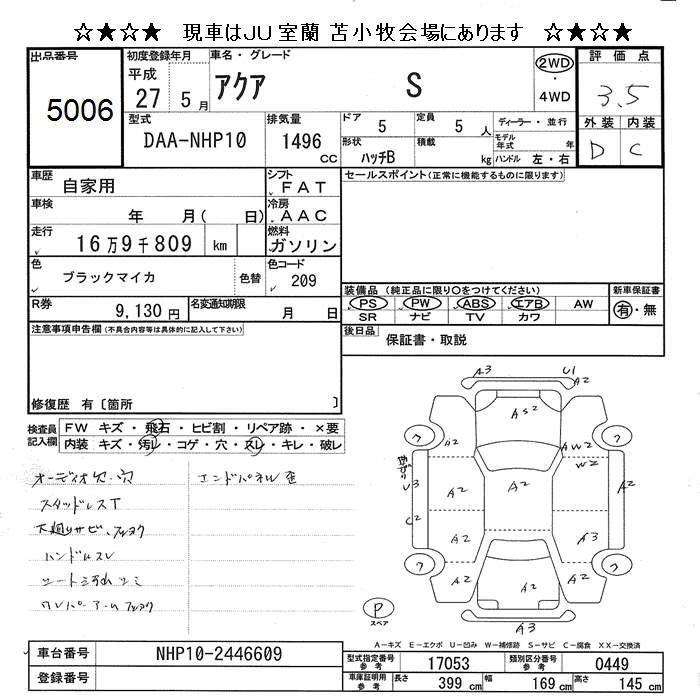 ☆★☆★ 現車はJU室蘭 苫小牧会場にあります ☆★☆★
出品番号
5006
初度登録年月
平成
27 5月
車名・グレード
アクア S
2WD
4WD
評価点
3.5
外装 内装
D C
型式
DAA-NHP10
排気量
1496
cc
ドア
5
定員
5 人
ディーラー・並行
モデル年式 年
形状
ハッチB
積載
kg
ハンドル 左・右
車歴
自家用
シフト
FAT
車検
年 月( 日)
冷房
AAC
走行
16万9千809 km
燃料
ガソリン
色
ブラックマイカ
色替
色コード
209
R券
9,130円
名変通知期限
月 日
セールスポイント(正常に機能するものに限ります)
装備品(純正品に限り○をつけてください)
新車保証書
PS PW ABS エアB AW
SR ナビ TV カワ
有・無
後日品
保証書・取説
注意事項申告欄(不具合内容等は具体的に記入して下さい)
修復歴 有〔箇所 〕
検査員記入欄
FW キズ・飛石・ヒビ割・リペア跡・×要
内装 キズ・汚レ・コゲ・穴・スレ・キレ・破レ
オーディオ欠・穴
エンドパネル歪
スタッドレスT
下廻りサビ、フショク
ハンドルスレ
シート
ワイパーアームフショク
A3
U1
A2
AS2
A2
AW2
W2
U3
A2
A2
A2
A2
C2
A2
A3
A2
A2
A2
A3
P
スペア
A-キズ E-エクボ U-凹み W-補修跡 S-サビ C-腐食 XX-交換済
車台番号
NHP10-2446609
登録番号
型式指定番号
参考
17053
類別区分番号
参考
0449
車庫証明用
参考
長さ
399 cm
幅
169 cm
高さ
145 cm